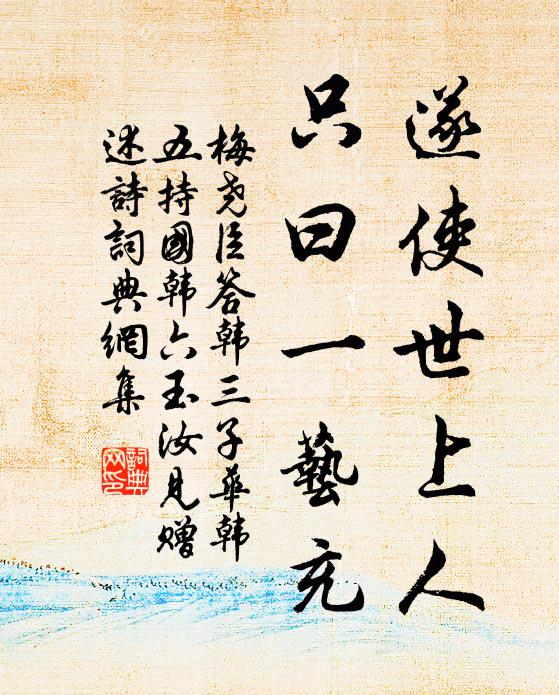 遂使世上人
只曰一藝充
梅尧臣答韩三子華韩
五持國韩六玉汝見赠
述詩詞典網集
詞典
网印